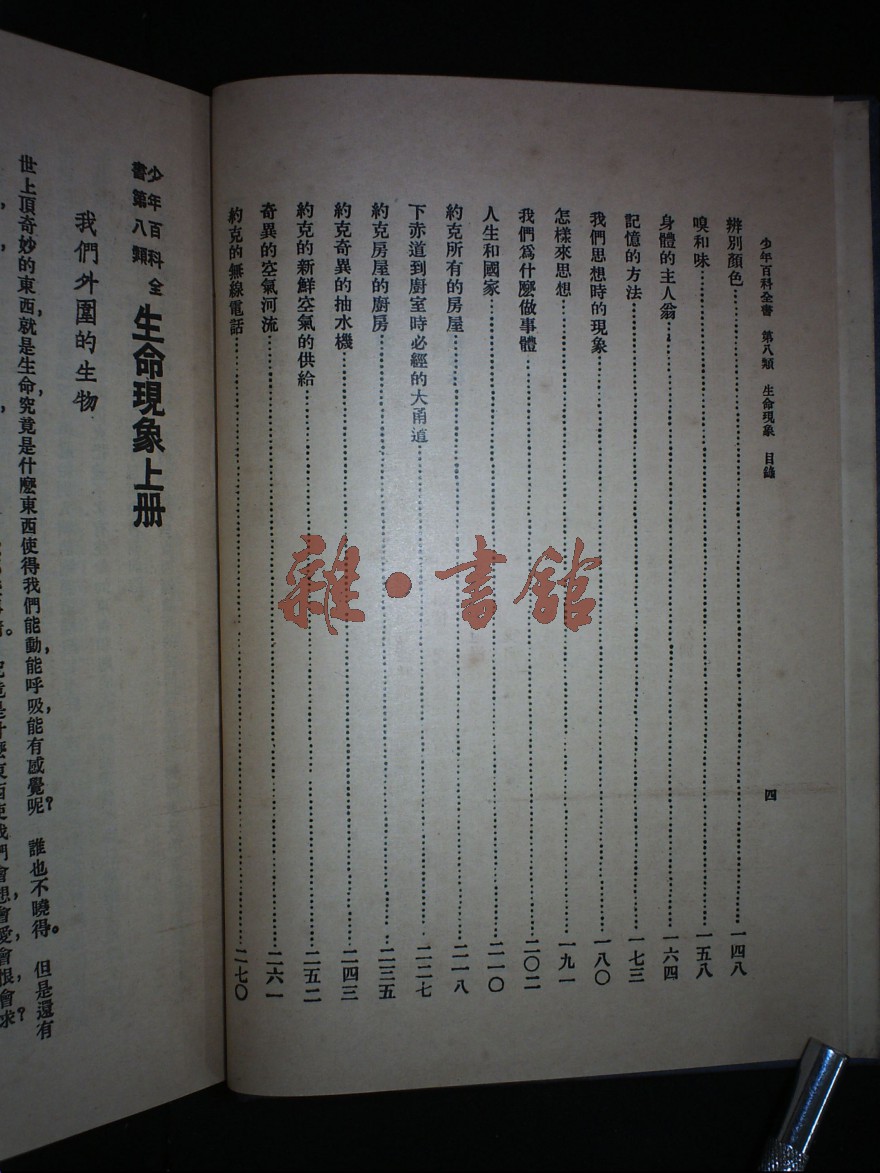 少年百科全書　第八類　生命現象　目錄
四
辨別顏色……一四八
嗅和味……一五八
身體的主人翁……一六四
記憶的方法……一七三
我們思想時的現象……一八〇
怎樣來思想……一九一
我們爲什麼做事體……二〇二
人生和國家……二一〇
約克所有的房屋……二一八
下赤道到廚室時必經的大甬道……二二七
約克房屋的廚房……二三五
約克奇異的抽水機……二四三
約克的新鮮空氣的供給……二五二
奇異的空氣河流……二六一
約克的無線電話……二七〇
少年百科全書第八類
生命現象上册
我們外圍的生物
世上頂奇妙的東西，就是生命究竟是什麼東西使得我們能動，能呼吸，能有感覺呢？　誰也不曉得。　但是還有
究竟是什麼東西使我們會想，會愛，會恨，會求？
雜·書館